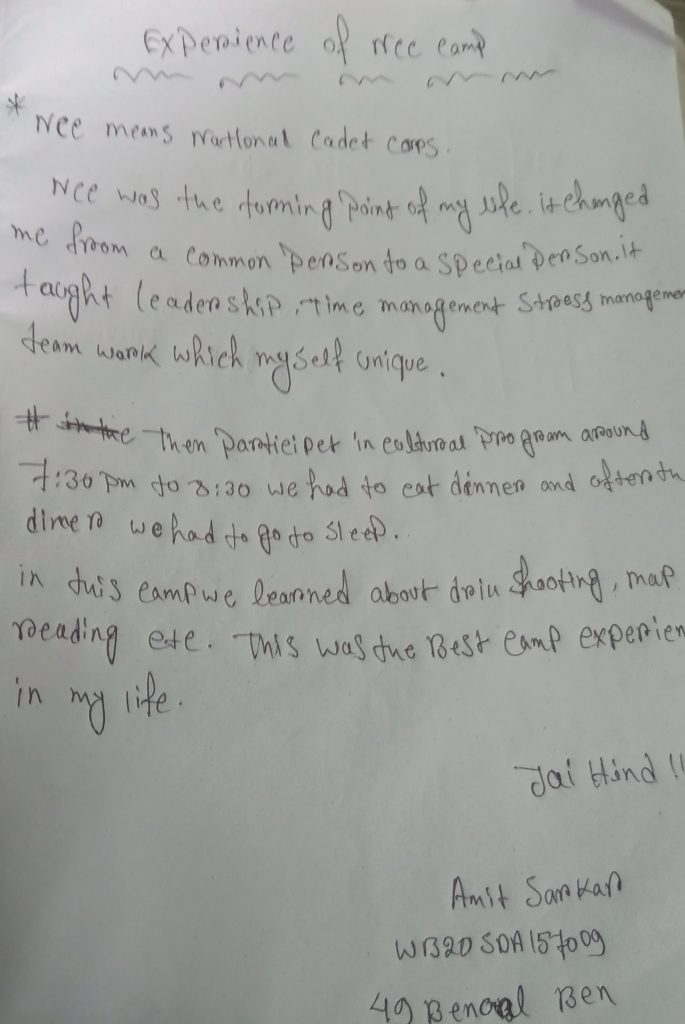 Experience of NCC camp
* NCC means National Cadet Corps.
NCC was the torning point of my life. it changed
me from a common person to a special person. it
taught leadership, time management stress managemen
team work which myself unique.
# Then participet in cultural program around
7:30 pm to 8:30 we had to eat dinner and after th
diner we had to go to sleep.
in this camp we learned about drill shooting, map
reading etc. This was the Best camp experien
in my life.
Jai Hind !!
Amit Sarkar
WB20SDA157009
49 Bengal Ben